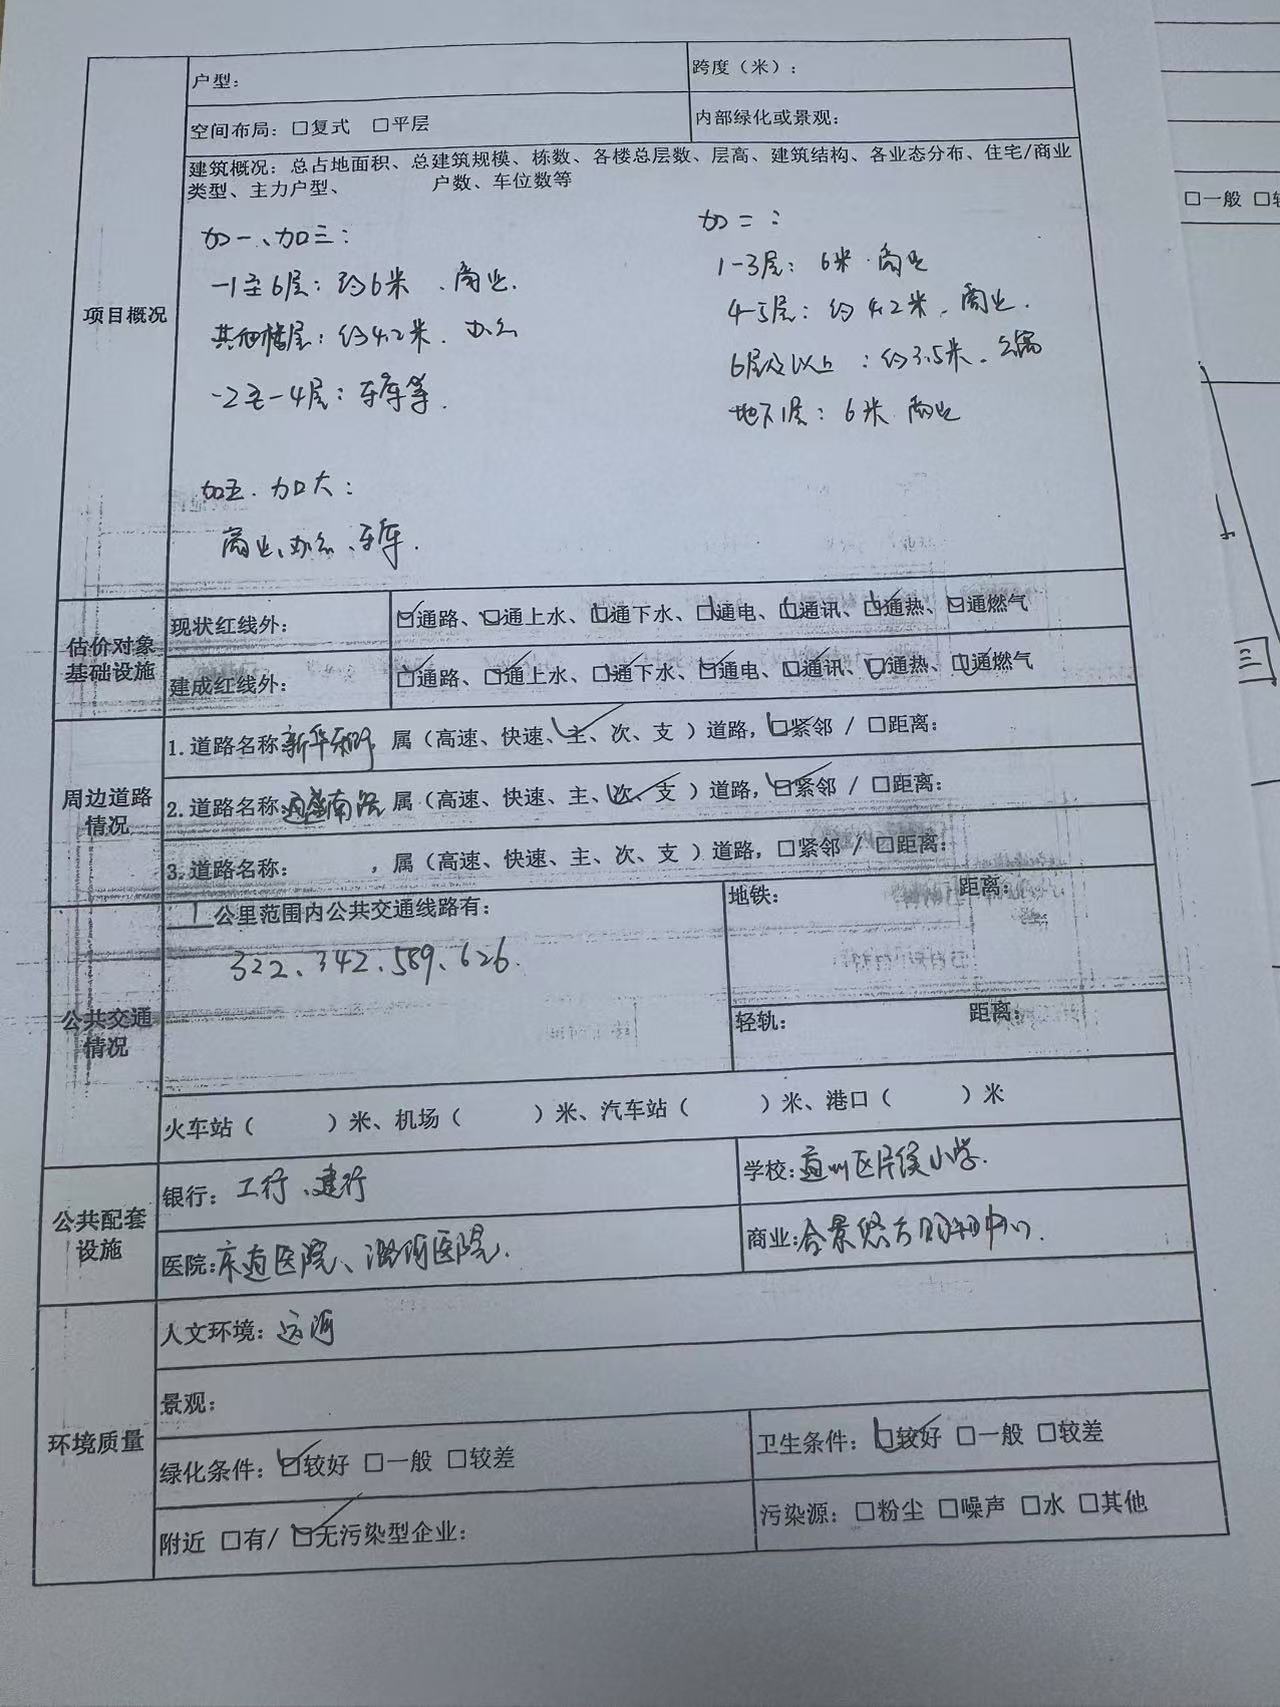 户型：
跨度（米）：
空间布局：□复式 □平层
内部绿化或景观：
建筑概况：总占地面积、总建筑规模、栋数、各楼总层数、层高、建筑结构、各业态分布、住宅/商业
类型、主力户型、 户数、车位数等
项目概况
加一、加三：
-1至6层：约6米、商业.
其他楼层：约4.2米. 办公
-2至-4层：车库等.
加二：
1-3层：6米.商业
4-5层：约4.2米、商业.
6层及以上：约3.5米.公寓
地下1层：6米 商业
加五.加六：
商业、办公、车库.
估价对象
基础设施
现状红线外：
☑通路、☑通上水、☑通下水、☑通电、☑通讯、☑通热、☑通燃气
建成红线外：
☑通路、☑通上水、☑通下水、☑通电、☑通讯、☑通热、☑通燃气
周边道路
情况
1.道路名称新华东路 属（高速、快速、主、次、支）道路，☑紧邻 / □距离：
2.道路名称 属（高速、快速、主、次、支 ）道路，☑紧邻 / □距离：
3.道路名称： ，属（高速、快速、主、次、支 ）道路，□紧邻 / □距离：
公共交通
情况
1公里范围内公共交通线路有：
322、342、589、626.
地铁： 距离：
轻轨： 距离：
火车站（ ）米、机场（ ）米、汽车站（ ）米、港口（ ）米
公共配套
设施
银行：工行、建行
学校：通州区后侯小学.
医院：东直医院、潞河医院.
商业：合景悠方购物中心.
环境质量
人文环境：运河
景观：
绿化条件：☑较好 □一般 □较差
卫生条件：☑较好 □一般 □较差
附近 □有/ ☑无污染型企业：
污染源：□粉尘 □噪声 □水 □其他
□一般
三